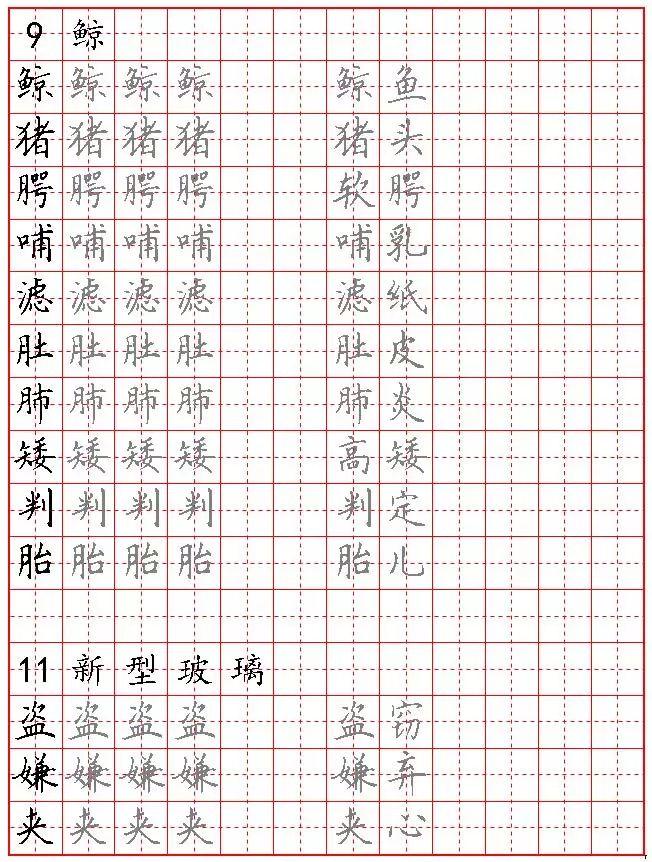 9 鲸
鲸 鲸 鲸 鲸 鲸 鱼
猪 猪 猪 猪 猪 头
腭 腭 腭 腭 软 腭
哺 哺 哺 哺 哺 乳
滤 滤 滤 滤 滤 纸
肚 肚 肚 肚 肚 皮
肺 肺 肺 肺 肺 炎
矮 矮 矮 矮 高 矮
判 判 判 判 判 定
胎 胎 胎 胎 胎 儿
11 新 型 玻 璃
盗 盗 盗 盗 盗 窃
嫌 嫌 嫌 嫌 嫌 弃
夹 夹 夹 夹 夹 心